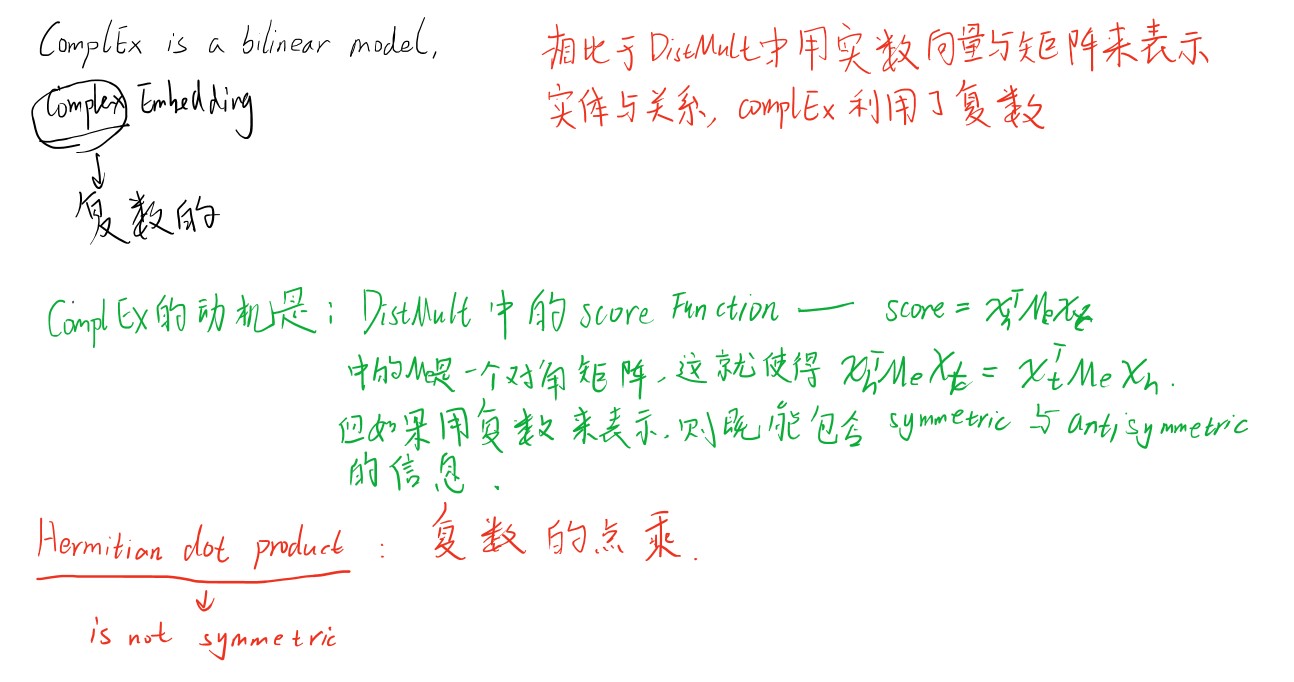 ComplEx is a bilinear model,
相比于DistMult中用实数向量与矩阵来表示
实体与关系, complEx 利用了复数
Complex Embedding
↓
复数的
ComplEx的动机是: DistMult 中的 score Function — score = xₕᵀMₑxₜ
中的Mₑ是一个对角矩阵, 这就使得 xₕᵀMₑxₜ = xₜᵀMₑxₕ.
但如果用复数来表示, 则既能包含 symmetric 与 antisymmetric
的信息.
Hermitian dot product : 复数的点乘.
↓
is not symmetric